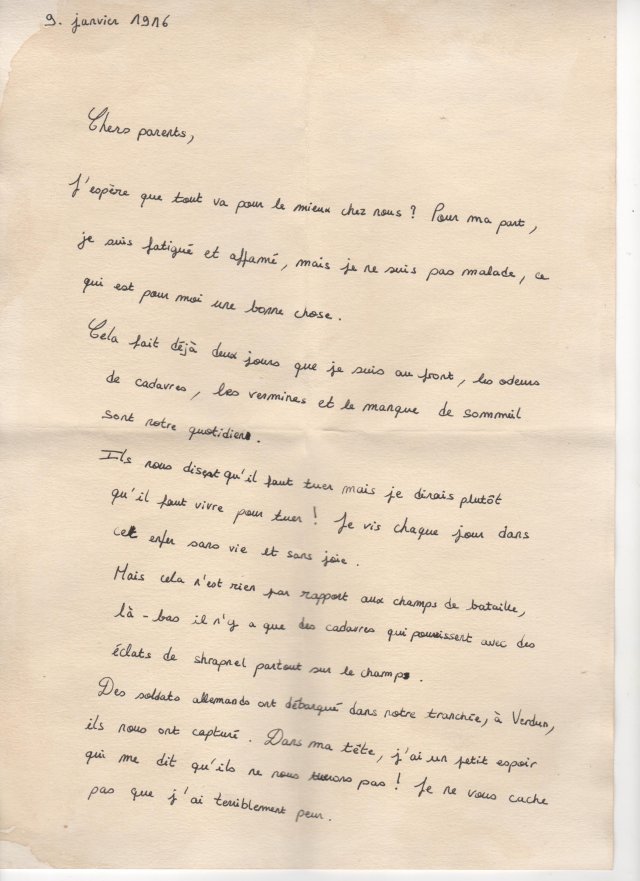 9. janvier 1916
Chers parents,
J'espère que tout va pour le mieux chez nous ? Pour ma part,
je suis fatigué et affamé, mais je ne suis pas malade, ce
qui est pour moi une bonne chose.
Cela fait déjà deux jours que je suis au front, les odeurs
de cadavres, les vermines et le manque de sommeil
sont notre quotidien.
Ils nous disent qu'il faut tuer mais je dirais plutôt
qu'il faut vivre pour tuer ! Je vis chaque jour dans
cet enfer sans vie et sans joie.
Mais cela n'est rien par rapport aux champs de bataille,
là-bas il n'y a que des cadavres qui pourrissent avec des
éclats de shrapnel partout sur le champs.
Des soldats allemands ont débarqué dans notre tranchée, à Verdun,
ils nous ont capturé. Dans ma tête, j'ai un petit espoir
qui me dit qu'ils ne nous tuerons pas ! Je ne vous cache
pas que j'ai terriblement peur.